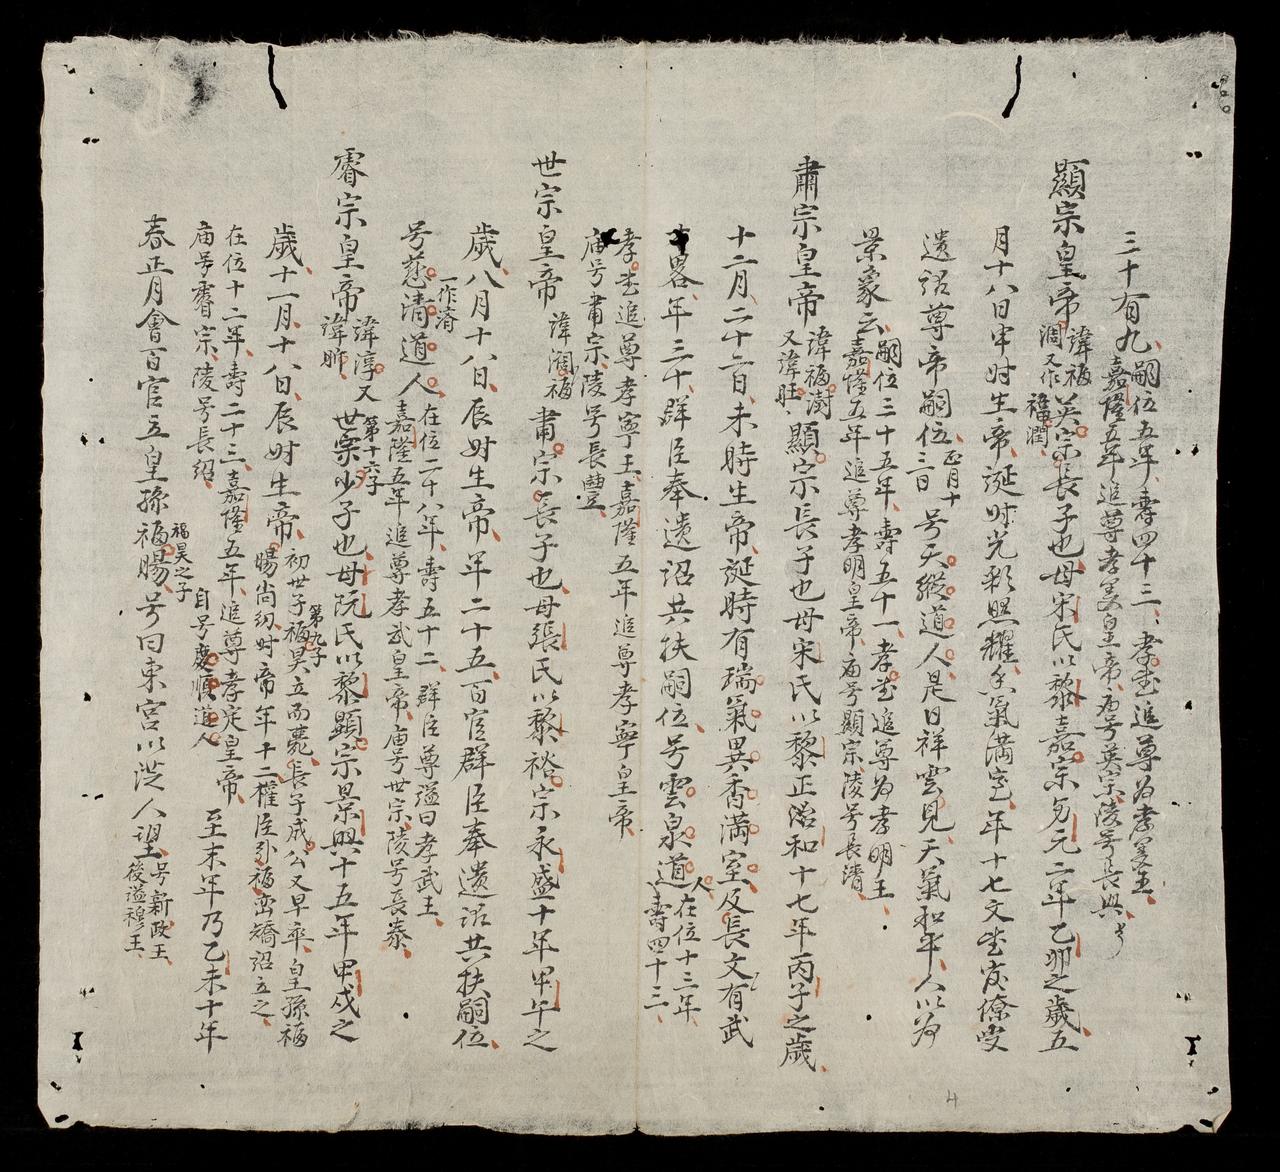 三十有九嗣位五年壽四十三孝武追尊为孝義王
嘉隆五年追尊孝義皇帝庙号英宗陵号長興
顯宗皇帝諱福濶又作福潤英宗長子也母宋氏以黎嘉宗乙卯之歲五
月十八日申时生帝誕时光彩照耀香氣滿室年十七文武官僚受
遺詔尊帝嗣位正月十三日号天縱道人是日祥雲見天氣和平人以为
景象云嗣位三十五年壽五十一孝武追尊为孝明王
嘉隆五年追尊孝明皇帝庙号顯宗陵号長清
肅宗皇帝諱福澍又諱旺顯宗長子也母宋氏以黎正治和十七年丙子之歲
十二月二十二日未時生帝誕時有瑞氣異香滿室及長文有武
畧年三十群臣奉遺詔共扶嗣位号雲泉道人在位十三年壽四十三
孝武追尊孝寧王嘉隆五年追尊孝寧皇帝
庙号肅宗陵号長豐
世宗皇帝諱濶福肅宗長子也母張氏以黎裕宗永盛十年甲午之
歲八月十八日辰时生帝年二十五百官群臣奉遺詔共扶嗣位
号慈清一作濟道人在位二十八年壽五十二群臣尊謚曰孝武王
嘉隆五年追尊孝武皇帝庙号世宗陵号長泰
睿宗皇帝諱淳又諱昈世宗第十六子少子也母阮氏以黎顯宗景興十五年甲戌之
歲十一月十八日辰时生帝初世子福昊第九子立而薨長子成公又早卒皇孫福
暘尚幼时帝年十二權臣張福巒矯詔立之
自号慶順道人
在位十二年壽二十三嘉隆五年追尊孝定皇帝
庙号睿宗陵号長紹
至末年乃乙未十年
春正月會百官立皇孫福暘福昊之子号曰東宮以從人望号新政王
後謚穆王
4